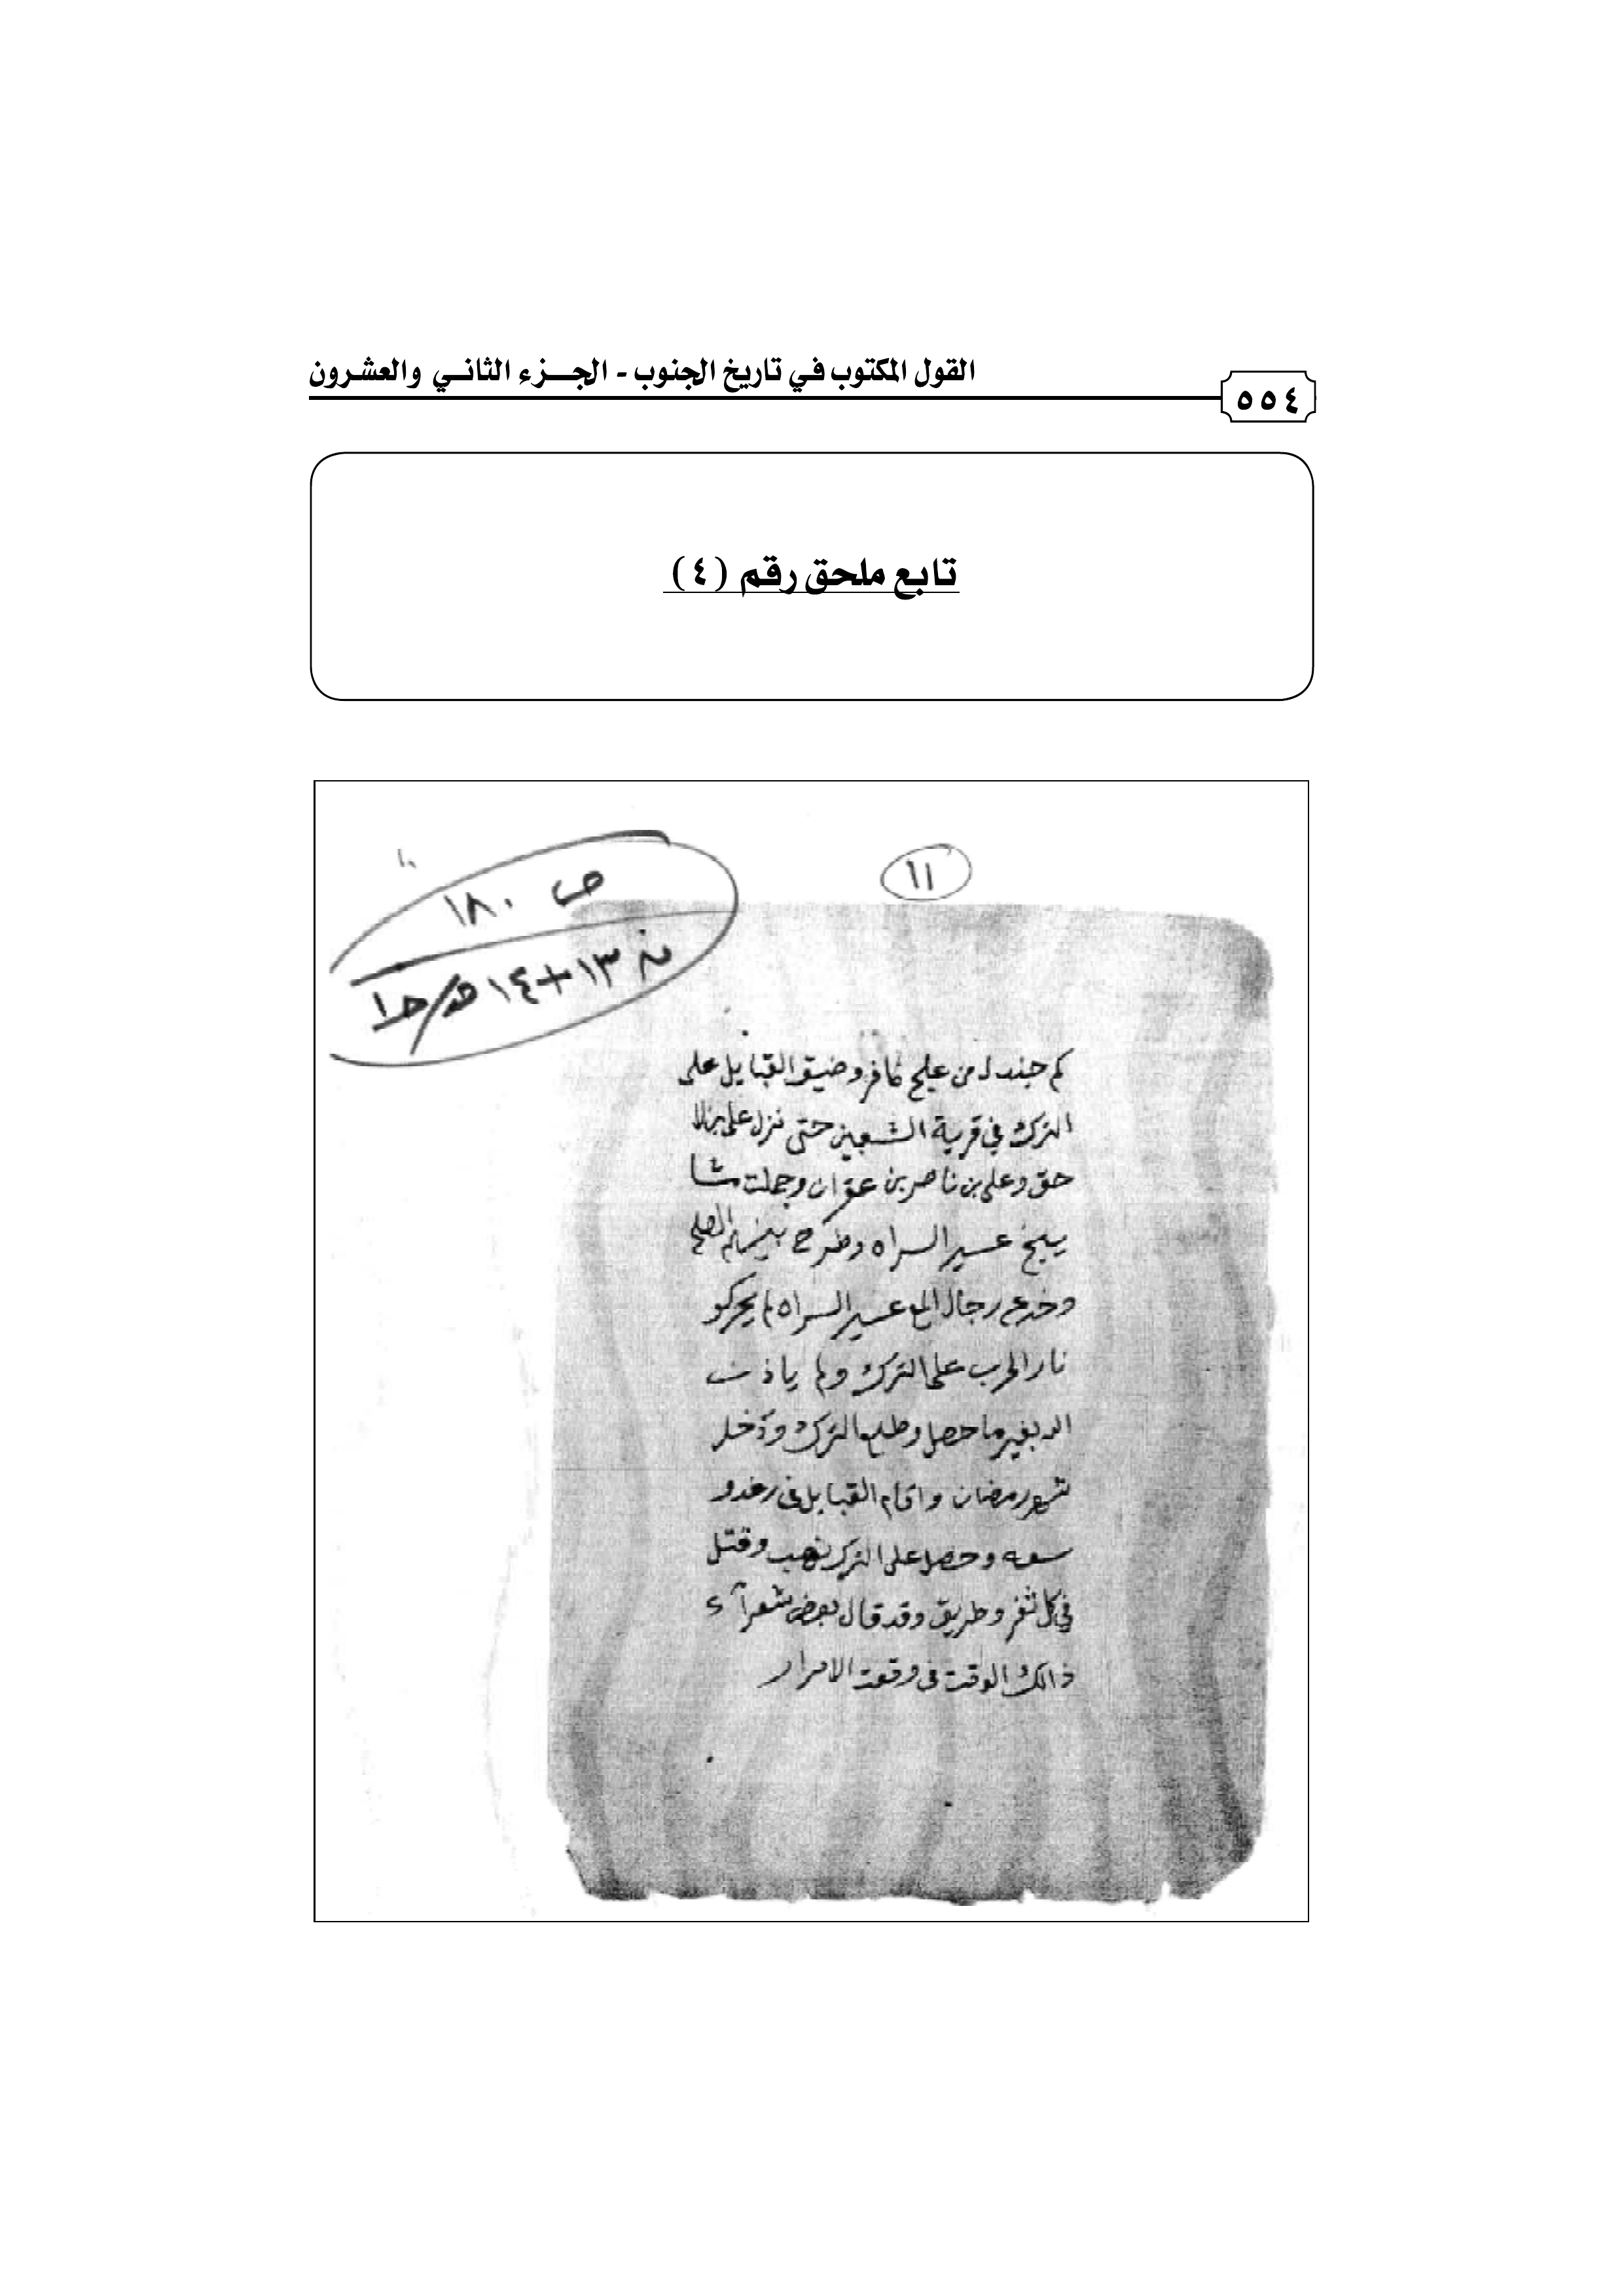 القول المكتوب في تاريخ الجنوب - الجزء الثاني والعشرون
٥٥٤
تابع ملحق رقم (٤)
١١
ص ١٨٠
١٣+١٤
كم جندل من علج كافر وضيق القبايل على
الترك في قرية الشعبين حتى نزل على
حق وعلي بن ناصر بن عوان وجملت مشا
ييخ عسير السراه وطرح بينهم الصلح
وخدع رجال المع عسير السراه لم يحركو
نار الحرب على الترك ولم ياذن
الله بغير ما حصل وطلع الترك ودخل
شهر رمضان واقام القبايل في رغدو
سعه وحصل على الترك نهب وقتل
في كل ثغر وطريق وقد قال بعض شعرآء
ذالك الوقت في وقعت الامرار